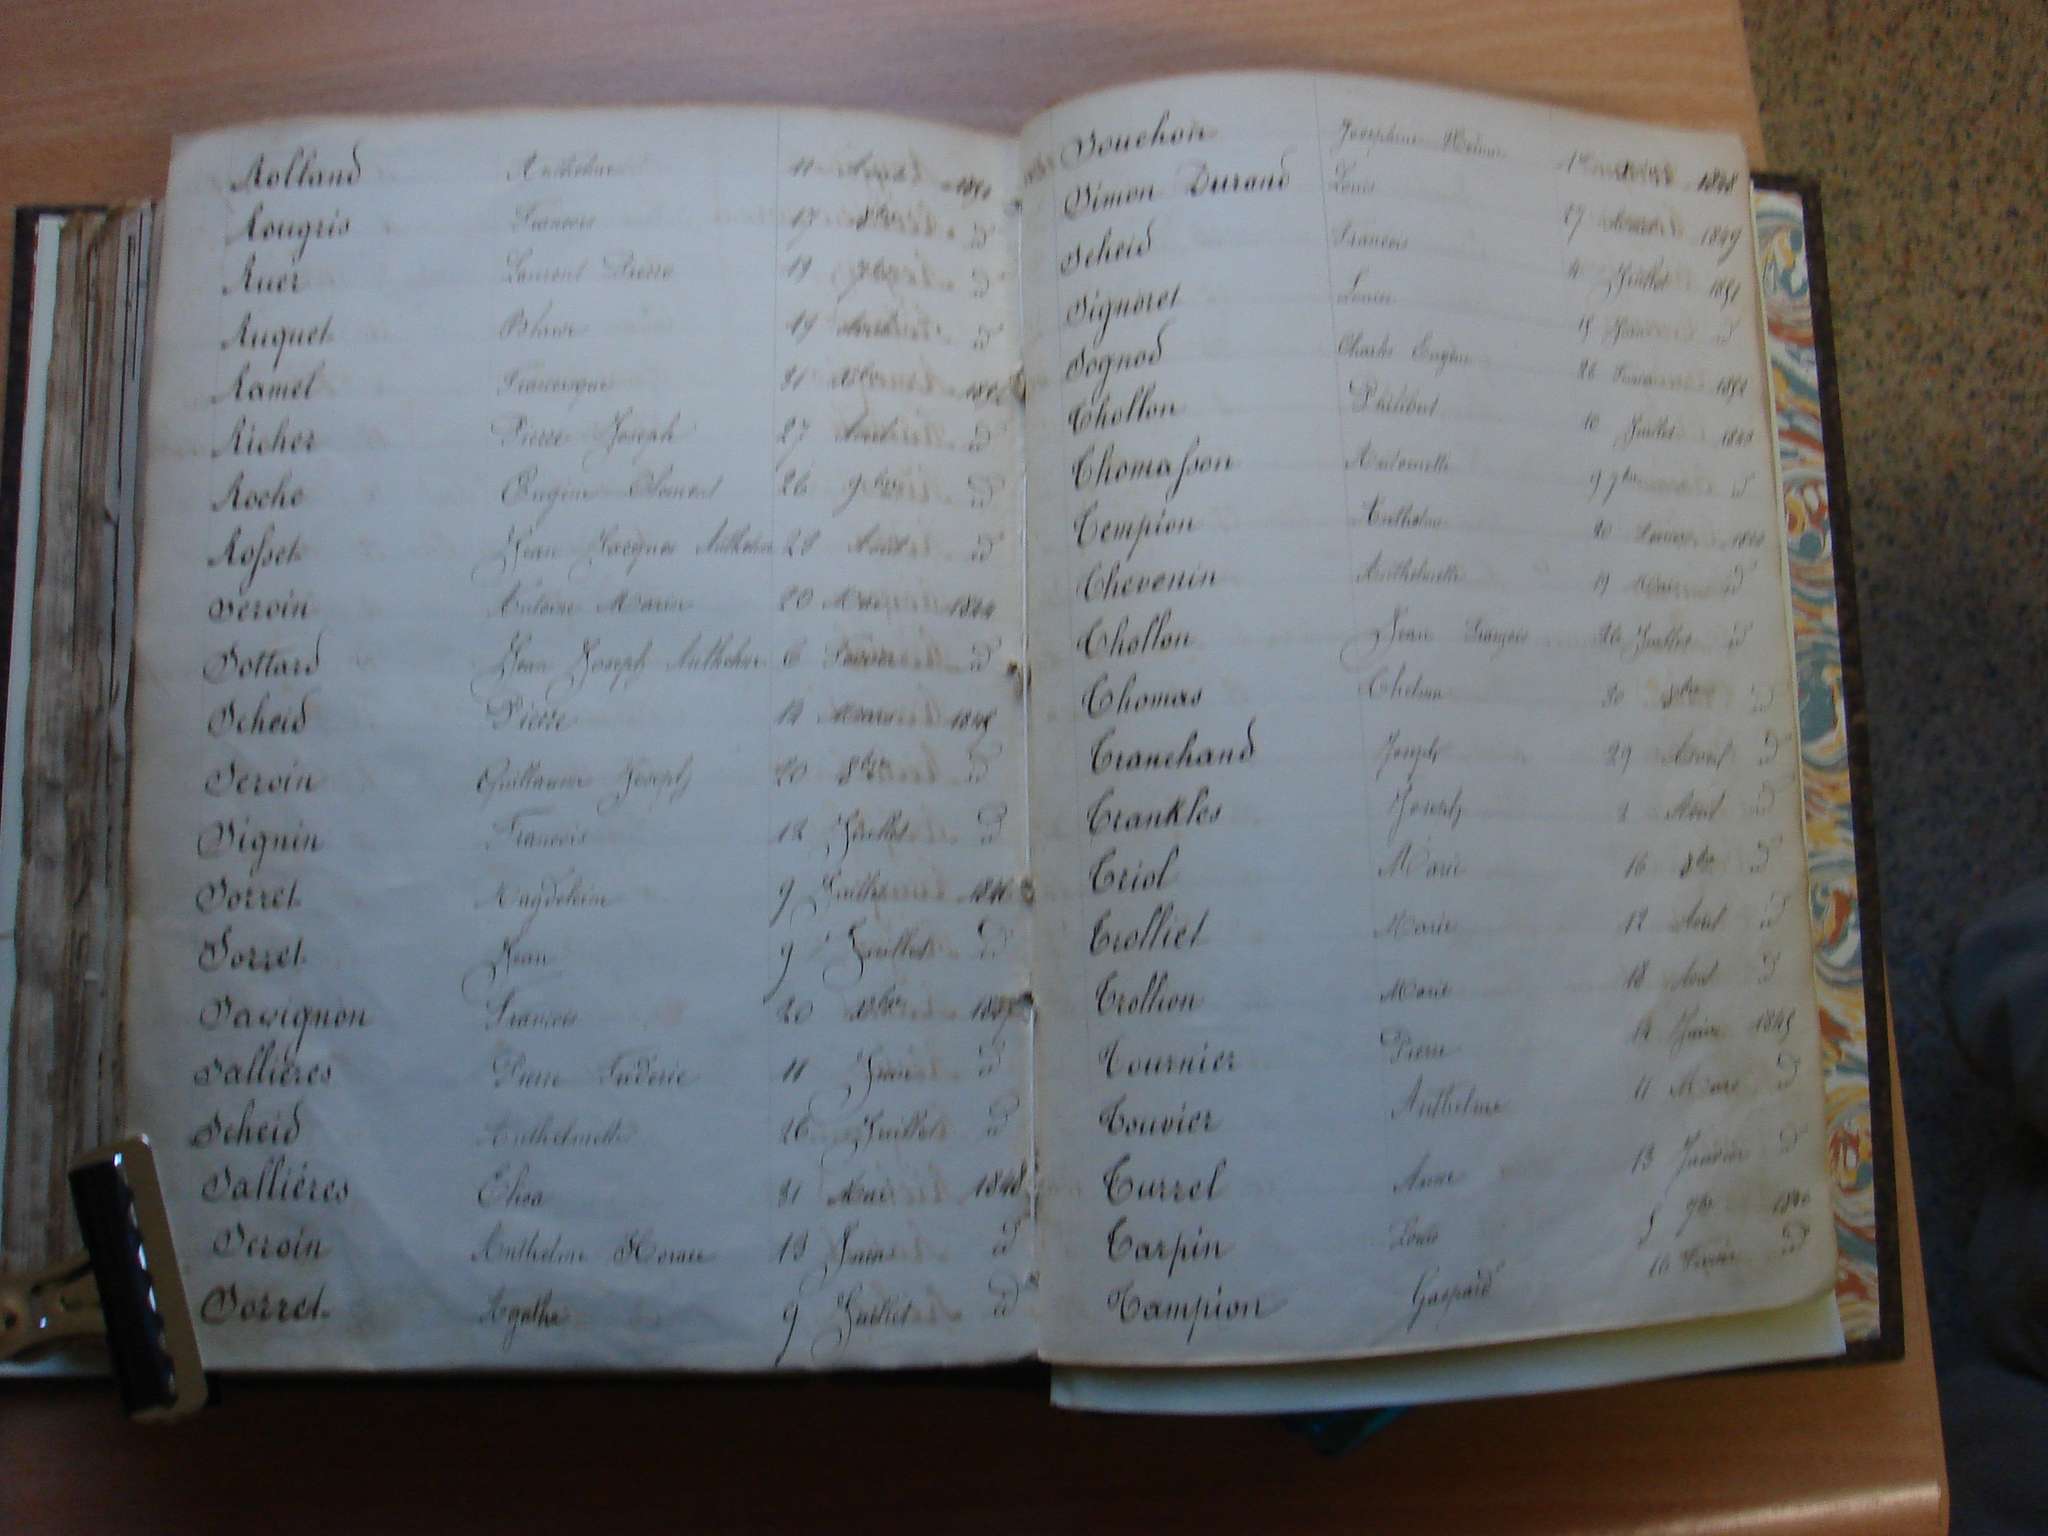 Rolland Anthelme 11
Rougris Francois 17 8bre d
Ruer Laurent Pierre 19 d
Ruquet 19 Avril d
Ramel Francisque 31 Xbre
Richer Pierre Joseph 27 Avril d
Roche Eugène Clément 26 9bre d
Rosset Jean Jacques Anthelme 28 Août d
Seroin Antoine Marin 20 Mai 1844
Sottard Jean Joseph Anthelme 6 Fevrier d
Scheid Pierre 14 Mars 1845
Seroin Guillaume Joseph 20 8bre d
Signin Francois 12 Juillet d
Sorret Magdeleine 9 Juillet 1846
Sorret Jean 9 Juillet d
Savignon Francois 20 Xbre 1847
Sallières Pierre Fréderic 11 Juin d
Scheid Anthelmette 26 Juillet d
Sallières Elisa 31 Mai 1848
Seroin Anthelme Horace 13 Juin d
Sorret Agathe 9 Juillet d
Souchon Josephine 1848
Simon Durand Louis 27 1849
Scheid Francois 4 Juillet 1851
Signoret Louise 15 d
Sognod Charles Eugène 26 1852
Thollon Philibert 10 Juillet 1843
Thomasson Antoinette 9 7bre d
Tempion Anthelme 20
Thevenin Anthelmette 19 Mars d
Thollon Jean François 26 Juillet d
Thomas 30 8bre d
Tranchand Joseph 29 Avril d
Trankles Joseph Août d
Triol Marie 16 8bre d
Trolliet Marie 12 Août d
Trollion Marie 18 Août d
Tournier Pierre 14 Juin 1845
Touvier Anthelme 11 Mars d
Turrel Anne 13 Janvier d
Tarpin Louis 5 9bre 1846
Tampion Gaspard 16 Fevrier d